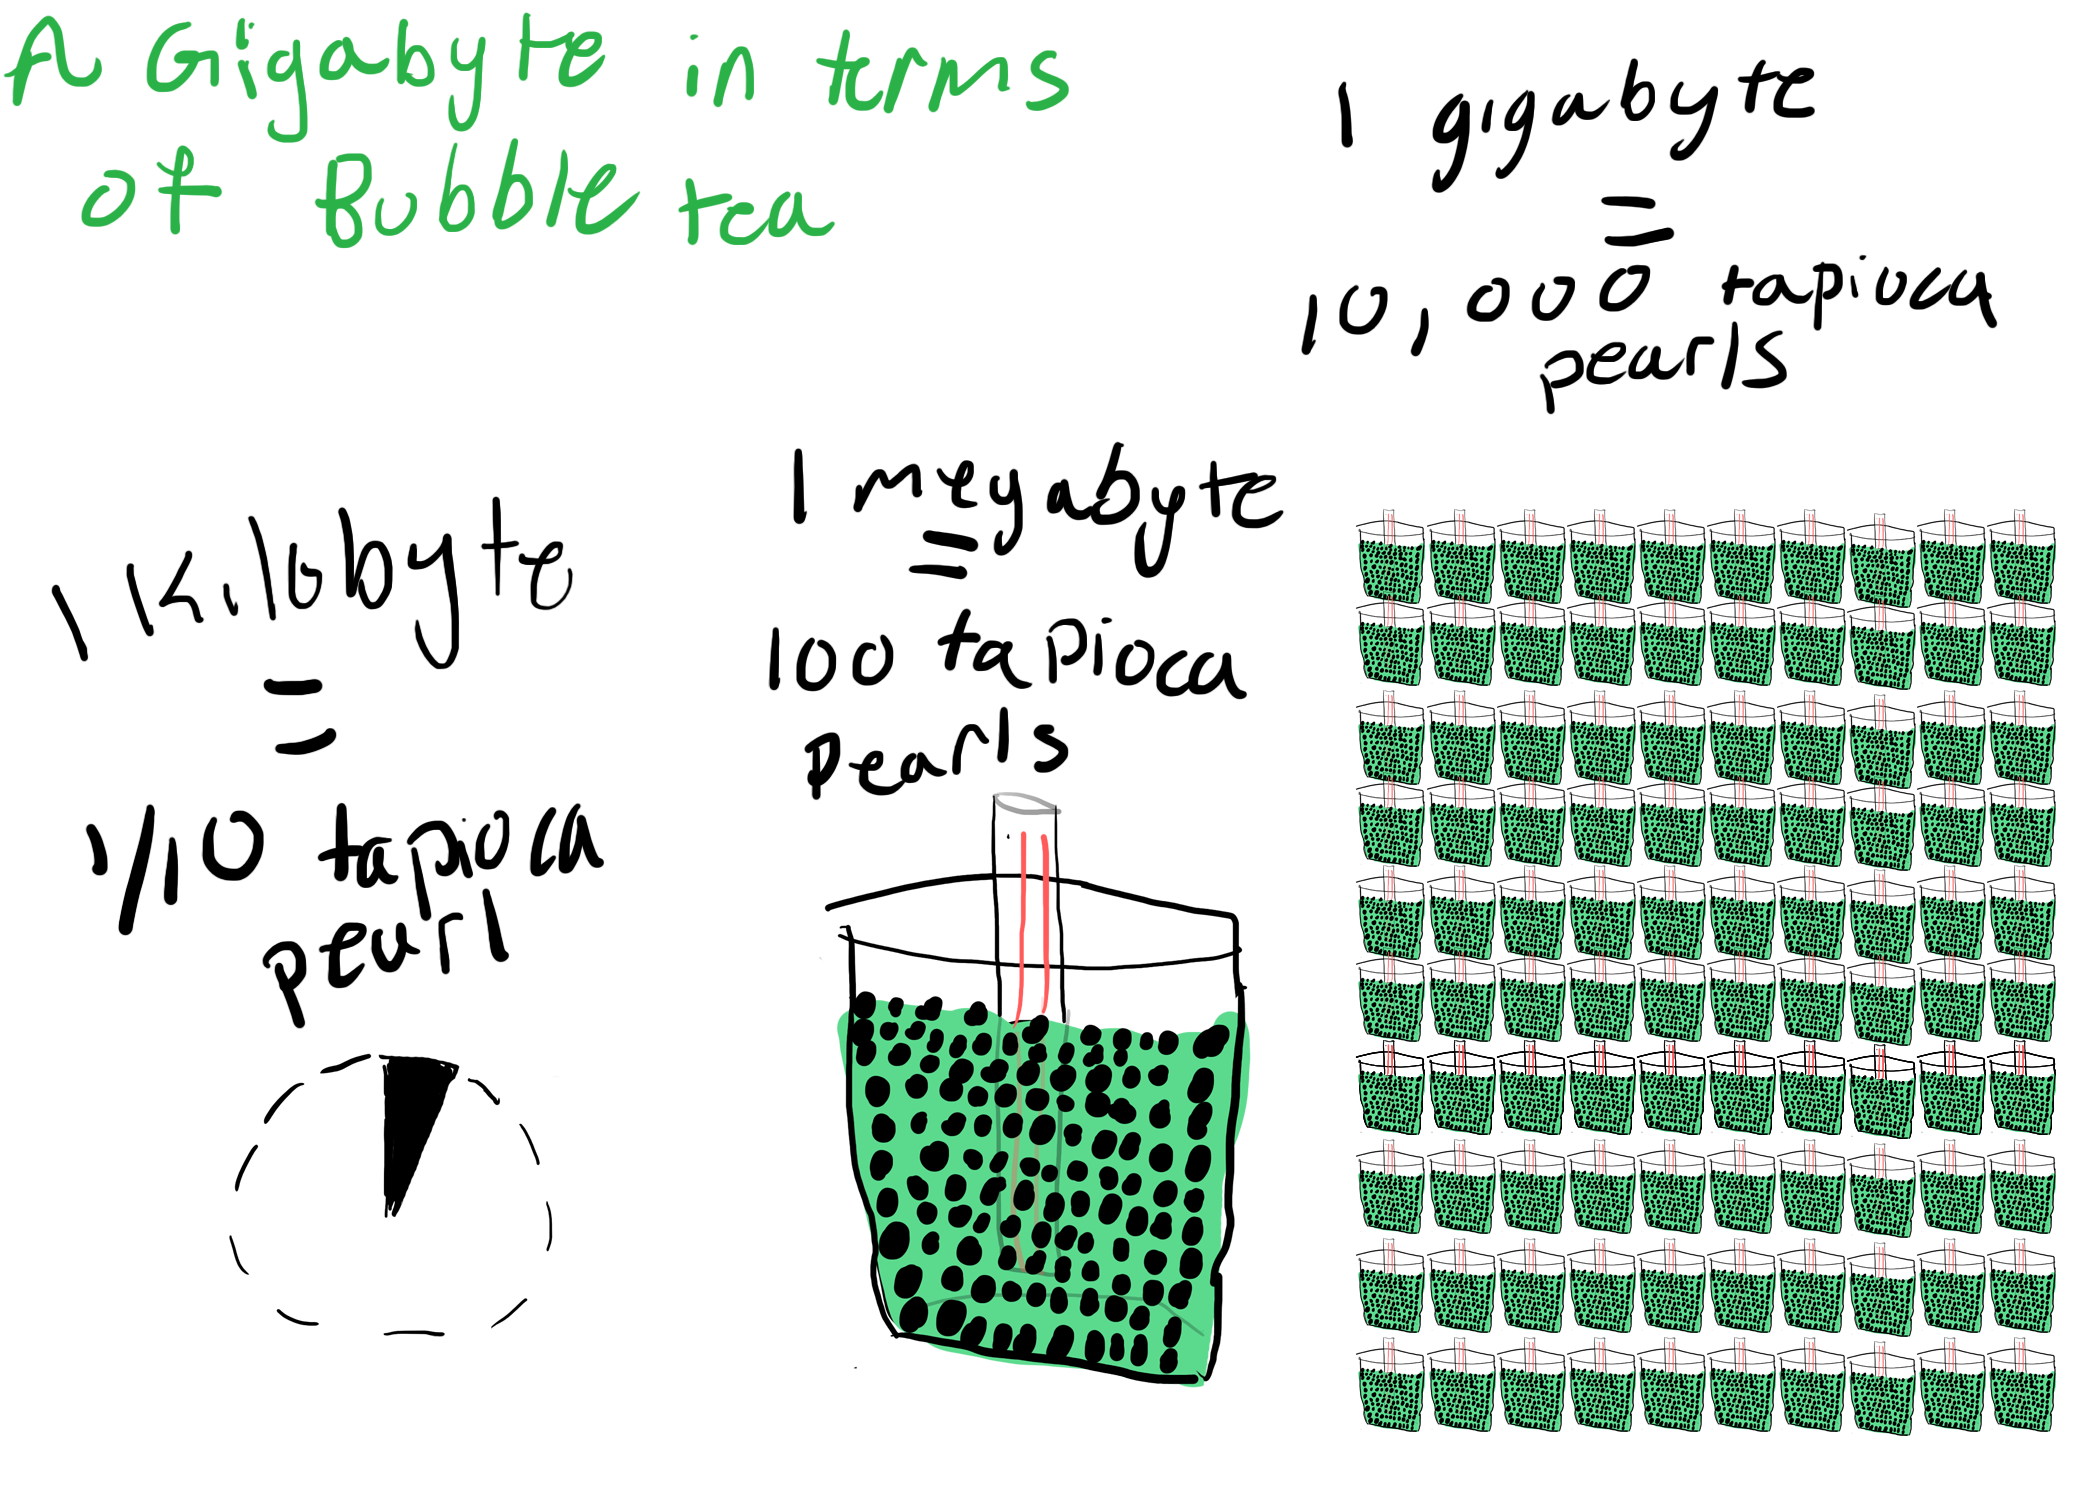 A Gigabyte in terms
of Bubble tea
1 kilobyte
=
1/10 tapioca
pearl
1 megabyte
=
100 tapioca
pearls
1 gigabyte
=
10,000 tapioca
pearls